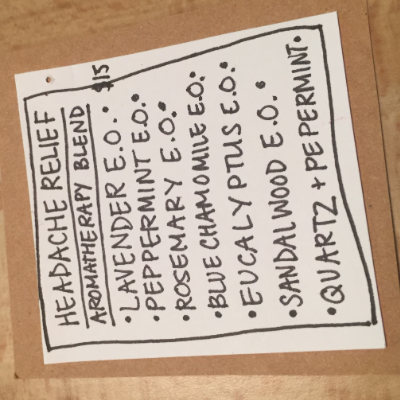 HEADACHE RELIEF
AROMATHERAPY BLEND $15
• LAVENDER E.O. •
• PEPPERMINT E.O. •
• ROSEMARY E.O. •
• BLUE CHAMOMILE E.O. •
• EUCALYPTUS E.O. •
• SANDALWOOD E.O. •
• QUARTZ + PEPERMINT •